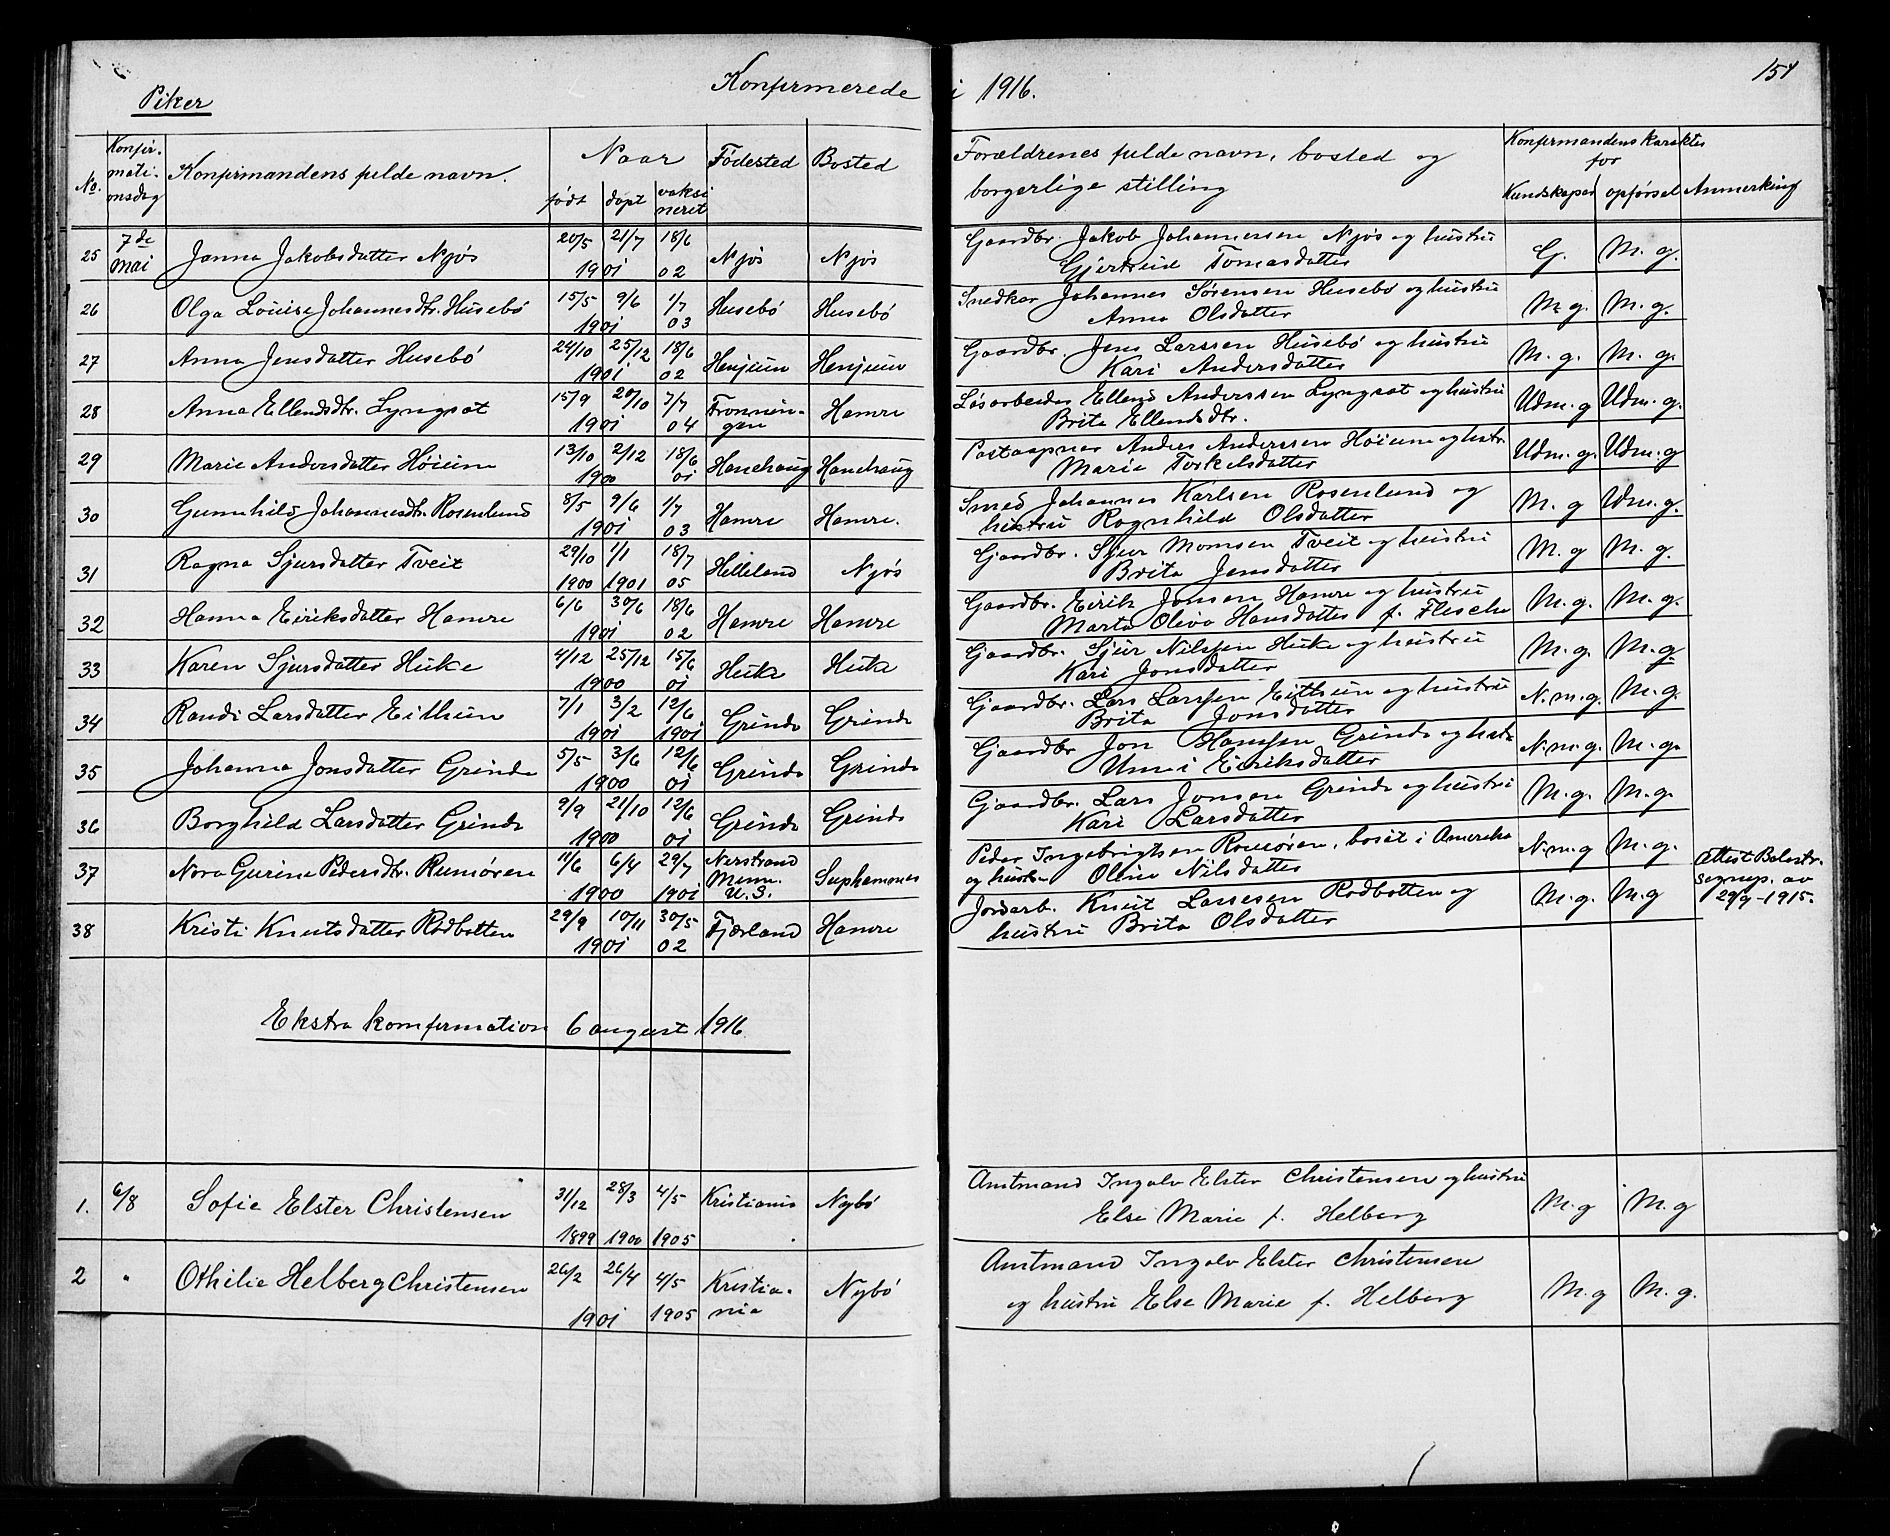 Piker
Konfirmerede i 1916.
154
No. Konfir-mati-onsdag Konfirmandens fulde navn. Naar født døpt vaksineret Fødested Bosted Forældrenes fulde navn, bosted og borgerlige stilling Konfirmandens karakter for Kundskaper opførsel Anmerkning
25 7de mai Janna Jakobsdatter Njøs 20/5 21/7 1901 18/6 02 Njøs Njøs Gaardbr. Jakob Johannessen Njøs og hustru
Gjertrud Tomasdatter G. M. g.
26 Olga Louise Johannesdtr. Husebö 15/5 9/6 1901 1/7 03 Husebö Husebö Snedker Johannes Sørensen Husebö og hustru
Anna Olsdatter M. g. M. g.
27 Anna Jensdatter Husebö 24/10 25/12 1901 18/6 02 Henjum Henjum Gaardbr. Jens Larssen Husebö og hustru
Kari Andersdatter M. g. M. g.
28 Anna Ellendsdtr. Lyngsæt 15/9 20/10 1901 7/7 04 Fronnin-gen Hamre Løsarbeider Ellend Anderssen Lyngsæt og hustru
Brita Ellendsdtr. Udm. g Udm. g.
29 Marie Andersdatter Höium 13/10 2/12 1900 18/6 01 Hanehaug Hanehaug Postaapner Anders Anderssen Höium og hstr.
Marie Torkelsdatter Udm. g. Udm. g
30 Gunnhild Johannesdtr. Rosenlund 8/5 9/6 1901 1/7 03 Hamre Hamre. Smed Johannes Karlsen Rosenlund og
hustru Ragnhild Olsdatter M. g Udm. g.
31 Ragna Sjursdatter Tveit 29/10 1900 1/1 1901 18/7 05 Helleland Njøs Gaardbr. Sjur Monsen Tveit og hustru
Brita Jensdatter M. g M. g.
32 Hanna Eiriksdatter Hamre 6/6 30/6 1901 18/6 02 Hamre Hamre Gaardbr. Eirik Jonsen Hamre og hustru
Marta Oliva Hansdatter f. Flesche M. g. M. g.
33 Karen Sjursdatter Huke 4/12 25/12 1900 15/6 01 Huke Huke Gaardbr. Sjur Nilssen Huke og hustru
Kari Jonsdatter M. g. M. g
34 Randi Larsdatter Eithun 7/1 3/2 1901 12/6 1901 Grinde Grinde Gaardbr. Lars Larssen Eithun og hustru
Brita Jonsdatter N. m. g. M. g.
35 Johanna Jonsdatter Grinde 5/5 3/6 1900 12/6 01 Grinde Grinde Gaardbr Jon Hanssen Grinde og hustr
Unni Eiriksdatter N. m. g. M. g.
36 Borghild Larsdatter Grinde 9/9 21/10 1900 12/6 01 Grinde Grinde Gaardbr. Lars Jonsen Grinde og hustru
Kari Larsdatter M. g. M. g.
37 Nora Gurine Pedersdtr. Rumören 11/6 6/4 1900 29/7 1901 Nerstrand Minn. U.S. Suphamnes Peder Ingebrigtsen Romören, bosat i Amerika
og hustru Oline Nilsdatter N. m. g M. g. Attest Balestr. sognep. av 29/9-1915.
38 Kristi Knutsdatter Rödbotten 29/9 10/11 1901 30/5 02 Fjærland Hamre Jordarb. Knut Lassesen Rödbotten og
hustru Brita Olsdatter M. g. M. g
Ekstra konfirmation 6 august 1916
1. 6/8 Sofie Elster Christensen 31/12 1899 28/3 1900 4/5 1905 Kristiania Nybö Amtmand Ingolv Elster Christensen og hustru
Else Marie f. Helberg M. g M. g
2 " Othilie Helberg Christensen 26/2 26/4 1901 4/5 1905 Kristia-nia Nybö Amtmand Ingolv Elster Christensen
og hustru Else Marie f. Helberg M. g M. g.